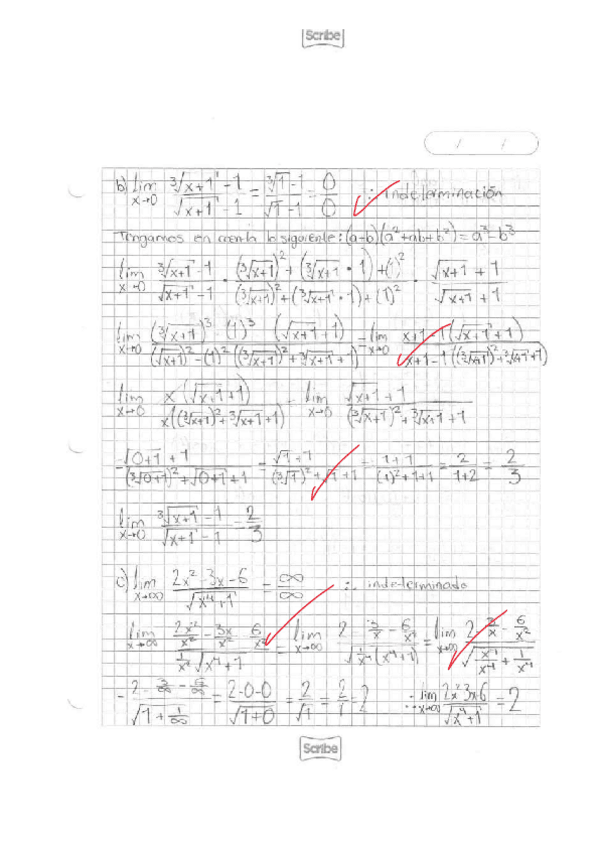 Scribe
/ /
b) lim x→0 (∛(x+1) - 1)/(√(x+1) - 1) = (∛1 - 1)/(√1 - 1) = 0/0 ∴ indeterminación
Tengamos en cuenta lo siguiente: (a-b)(a²+ab+b²) = a³-b³
lim x→0 (∛(x+1) - 1)/(√(x+1) - 1) · ((∛(x+1))² + (∛(x+1) · 1) + (1)²)/((∛(x+1))² + (∛(x+1) · 1) + (1)²) · (√(x+1) + 1)/(√(x+1) + 1)
lim x→0 ((∛(x+1))³ - (1)³ (√(x+1) + 1))/((√(x+1))² - (1)² ((∛(x+1))² + ∛(x+1) + 1)) = lim x→0 (x+1-1(√(x+1) + 1))/(x+1-1((∛(x+1))² + ∛(x+1) + 1))
lim x→0 (x(√(x+1) + 1))/(x((∛(x+1))² + ∛(x+1) + 1)) = lim x→0 (√(x+1) + 1)/((∛(x+1))² + ∛(x+1) + 1)
= (√(0+1) + 1)/((∛(0+1))² + √(0+1) + 1) = (√1 + 1)/((∛1)² + √1 + 1) = (1+1)/((1)²+1+1) = 2/(1+2) = 2/3
lim x→0 (∛(x+1) - 1)/(√(x+1) - 1) = 2/3
c) lim x→∞ (2x² - 3x - 6)/√(x⁴+1) = ∞/∞ ∴ indeterminado
lim x→∞ (2x²/x² - 3x/x² - 6/x²)/(1/x² √(x⁴+1)) = lim x→∞ (2 - 3/x - 6/x²)/√(1/x⁴ (x⁴+1)) = lim x→∞ (2 - 3/x - 6/x²)/√(x⁴/x⁴ + 1/x⁴)
= (2 - 3/∞ - 6/∞)/√(1 + 1/∞) = (2-0-0)/√(1+0) = 2/√1 = 2/1 = 2 ∴ lim x→∞ (2x² 3x-6)/√(x⁴+1) = 2
Scribe